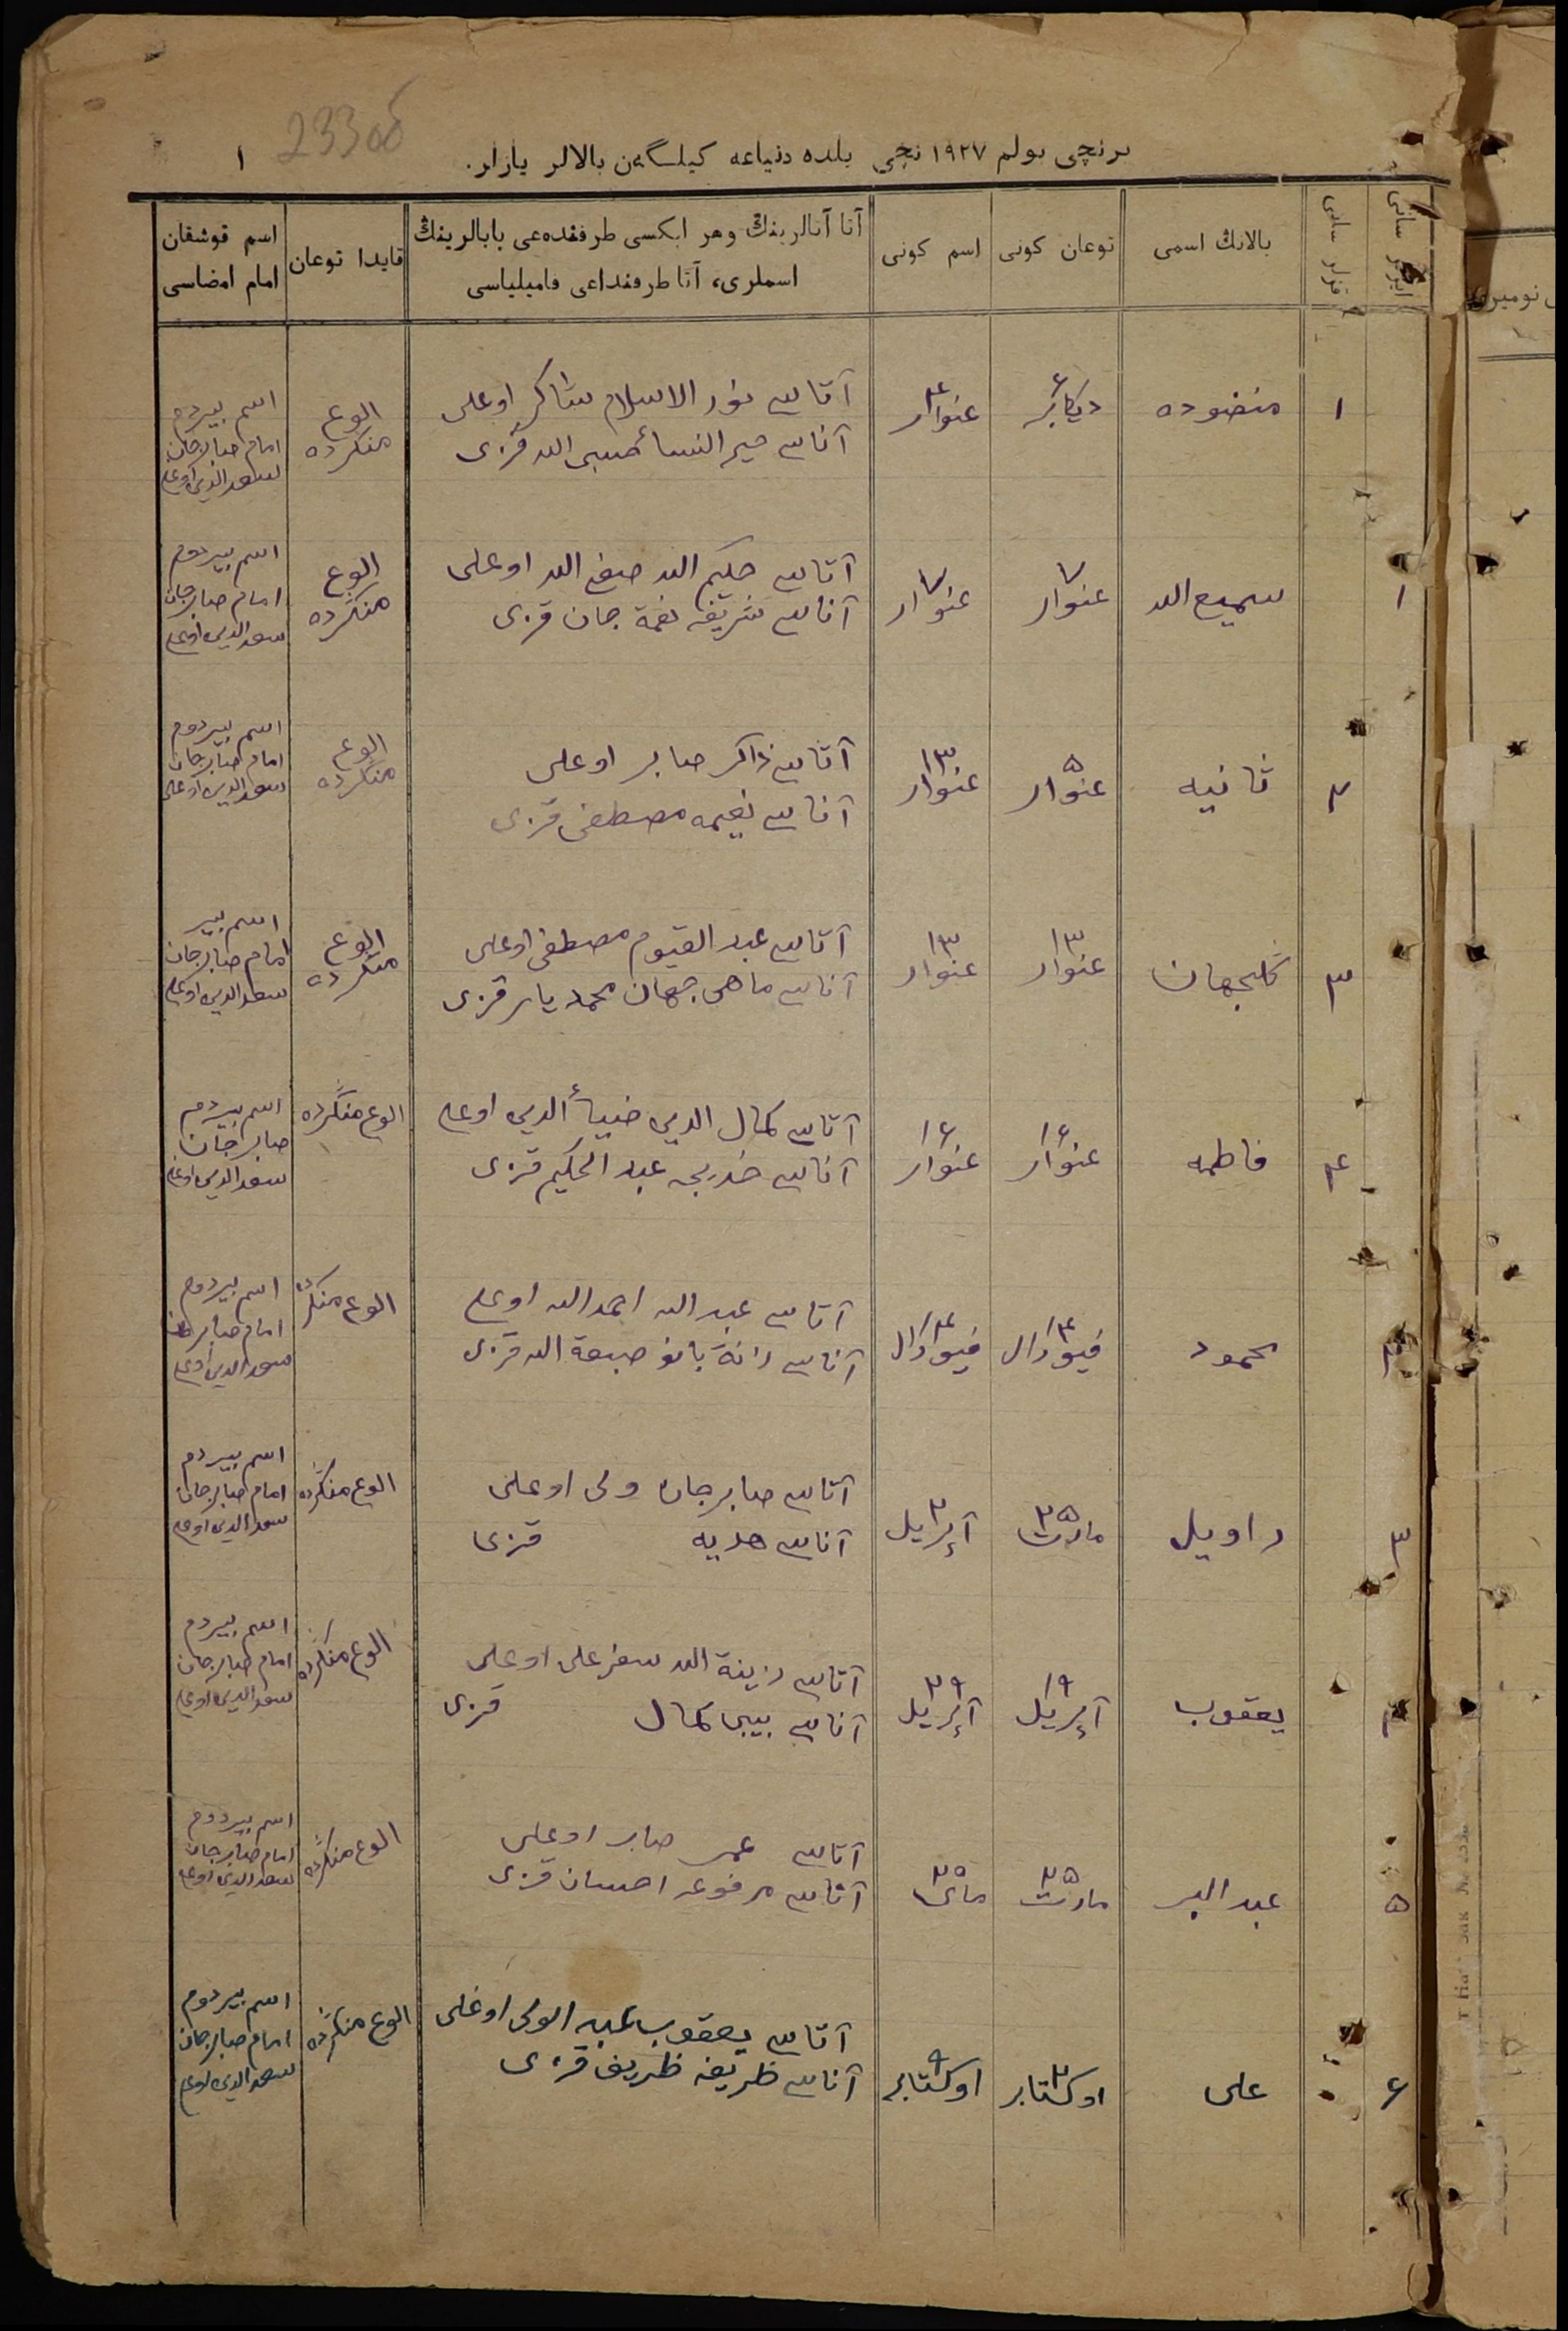 233об
برنچی بولم ۱۹۲۷ نچی یلده دنیاعه کیلگەن بالالر یازلر. ۱
ایرلر سانی
قزلر سانی
بالانڭ اسمی
توعان کونی
اسم کونی
آتا آنالرینڭ وهر ایکسی طرفنده‌عی بابالرینڭ
اسملری، آتا طرفنداعی فامیلیاسی
قایدا توعان
اسم قوشقان
امام امضاسی
۱
دیکابر ۶
عنوار ۴
آتاسی نور الاسلام شاکر اوعلی
آناسی خیر النسا حسبی الله قزی
الوع
منگرده
اسم بیردم
امام صابرجان
سعد الدین اوعلی
۱
سمیع الله
عنوار ۷
عنوار ۷
آتاسی حکیم الله صفی الله اوعلی
آناسی شریفه نعمة جان قزی
الوع
منگرده
اسم بیردم
امام صابرجان
سعد الدین اوعلی
۲
ثانیه
عنوار ۵
عنوار ۱۳
آتاسی ذاکر صابر اوعلی
آناسی نعیمه مصطفی قزی
الوع
منگرده
اسم بیردم
امام صابرجان
سعد الدین اوعلی
۳
گلجهان
عنوار ۱۳
عنوار ۱۳
آتاسی عبد القیوم مصطفی اوعلی
آناسی ماهی جهان محمد یار قزی
الوع
منگرده
اسم بیر
امام صابرجان
سعد الدین اوعلی
۴
فاطمه
عنوار ۱۶
عنوار ۱۶
آتاسی کمال الدین ضیاء الدین اوعلی
آناسی خدیجه عبد الحکیم قزی
الوع منگرده
اسم بیردم
صابرجان
سعد الدین اوعلی
۲
محمود
فیورال
فیورال
آتاسی عبد الله احمد الله اوعلی
آناسی بانو صبغة الله قزی
الوع منگرده
اسم بیردم
امام صابرجان
سعد الدین اوعلی
۳
راویل
مارت ۲۵
آپریل ۲
آتاسی صابرجان ولی اوعلی
آناسی هدیه قزی
الوع منگرده
اسم بیردم
امام صابرجان
سعد الدین اوعلی
۴
یعقوب
آپریل ۱۹
آپریل ۲۹
آتاسی زینة الله سفر علی اوعلی
آناسی بیبی کمال قزی
الوع منگرده
اسم بیردم
امام صابرجان
سعد الدین اوعلی
۵
عبد البر
مارت ۲۵
مای ۲۵
آتاسی عمر صابر اوعلی
آناسی مرفوعه احسان قزی
الوع منگرده
اسم بیردم
امام صابرجان
سعد الدین اوعلی
۶
علی
اوکتابر ۲
اوکتابر ۹
آتاسی یعقوب عبد الولی اوغلی
آناسی ظریفه ظریف قزی
الوع منگرده
اسم بیردم
امام صابرجان
سعد الدین اوعلی